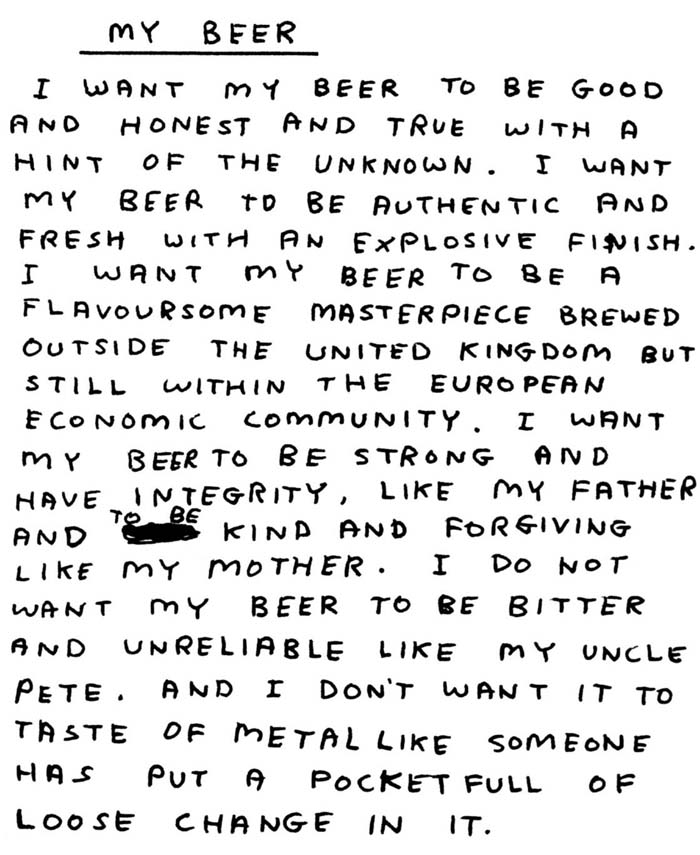 MY BEER
I WANT MY BEER TO BE GOOD
AND HONEST AND TRUE WITH A
HINT OF THE UNKNOWN. I WANT
MY BEER TO BE AUTHENTIC AND
FRESH WITH AN EXPLOSIVE FINISH.
I WANT MY BEER TO BE A
FLAVOURSOME MASTERPIECE BREWED
OUTSIDE THE UNITED KINGDOM BUT
STILL WITHIN THE EUROPEAN
ECONOMIC COMMUNITY. I WANT
MY BEER TO BE STRONG AND
HAVE INTEGRITY, LIKE MY FATHER
AND TO BE KIND AND FORGIVING
LIKE MY MOTHER. I DO NOT
WANT MY BEER TO BE BITTER
AND UNRELIABLE LIKE MY UNCLE
PETE. AND I DON'T WANT IT TO
TASTE OF METAL LIKE SOMEONE
HAS PUT A POCKET FULL OF
LOOSE CHANGE IN IT.